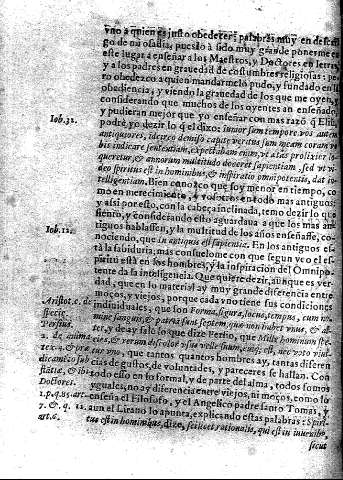 vno a quien es justo obedecer; palabras muy en descar
go de mi osadia, puesto à sido muy grande ponerme en
este lugar a enseñar a los Maestros, y Doctores en letras,
y a los padres en grauedad de costumbres religiosas: pe
ro obedezco a quien mandarmelo pudo, y fundado en la
obediencia, y viendo la grauedad de los que me oyen, y
considerando que muchos de los oyentes an enseñado,
y pudieran mejor que yo enseñar con mas razõ q̃ Eliu,
Iob. 32.
podrè yo dezir lo q̃ el dixo: Iunior sum tempore vos autem
antiquiores, idcirco demisso capite veritus sum meam coram vo
bis indicare sententiam, expectabam enim, vt ætas prolixior lo
queretur, & annorum multitudo doceret sapientiam, sed vt vi
deo spiritus est in hominibus, & inspiratio omnipotentis, dat in
telligentiam. Bien conozco que soy menor en tiempo, co
mo en merecimiento, y vosotros en todo mas antiguos:
y assi por esto, con la cabeça inclinada, temo dezir lo que
siento, y considerando esto aguardaua a que los mas an
tiguos hablassen, y la multitud de los años enseñasse, co-
Iob. 12.
nociendo, que in antiquis est sapientia. En los antiguos es
tà la sabiduria; mas consuelome con que segun veo el es
piritu està en los hombres, y la inspiracion del Omnipo
tente da la inteligencia. Que quiere dezir, aunque es ver
dad, que en lo material ay muy grande diferencia entre
moços, y viejos, porque cada vno tiene sus condiciones
Aristot. c. de
specie.
indiuiduales, que son Forma, figura, locus, tempus, cum no
mine sanguis, & patria sunt septem, quæ non habet vnus, & al-
Persius.
ter, y de ay salio lo que dize Persio, que Mille hominum spe-
2. de anima
cies, & rerum discolor vsus velle suum, cuiq; est, nec voto viui-
tex. 4. & præ
tur vno, que tantos quantos hombres ay, tantas diferen
dicamẽto sub
cias de gustos, de voluntades, y pareceres se hallan. Con
stãtiæ, & ibi
todo esso en lo formal, y de parte del alma, todos somos
Doctores.
yguales, no ay diferencia entre viejos, ni moços, como lo
1. p. q. 85. art.
enseña el Filosofo, y el Angelico padre santo Tomas, y
7. & q. 12.
art. 6.
aun el Lirano lo apunta, explicando estas palabras: Spiri-
tus est in hominibus, dize, scilicet rationalis, qui est in iuuenibus,
sicut